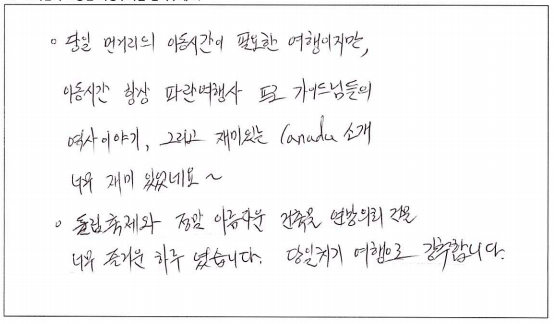 ◦ 당일 먼거리의 이동시간이 필요한 여행이지만,
이동시간 항상 파란여행사 프로 가이드님들의
역사이야기, 그리고 재미있는 Canada 소개
너무 재미 있었네요~
◦ 튤립축제와 정말 아름다운 건축물 연방의회 건물
너무 즐거운 하루 였습니다. 당일치기 여행으로 강추합니다.